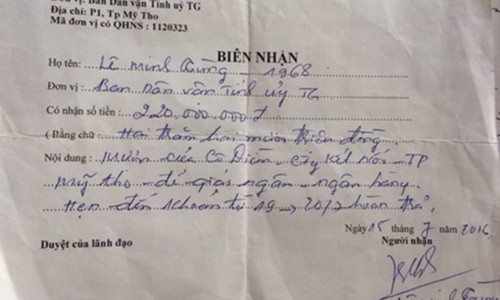 Đơn vị: Ban Dân vận Tỉnh uỷ TG
Địa chỉ: P1, Tp Mỹ Tho
Mã đơn vị có QHNS : 1120323
BIÊN NHẬN
Họ tên: Lê Minh Tùng - 1968
Đơn vị : Ban dân vận Tỉnh ủy TG
Có nhận số tiền : 220.000.000đ
( Bằng chữ : Hai trăm hai mươi triệu đồng.
Nội dung : Mượn của Cô Diễm - Cty Kết Nối - TP
Mỹ Tho để giải ngân ngân hàng.
Hẹn đến khoản từ 19 - 20/7 hoàn trả.
Ngày 15 tháng 7 năm 2016
Duyệt của lãnh đạo
Người nhận